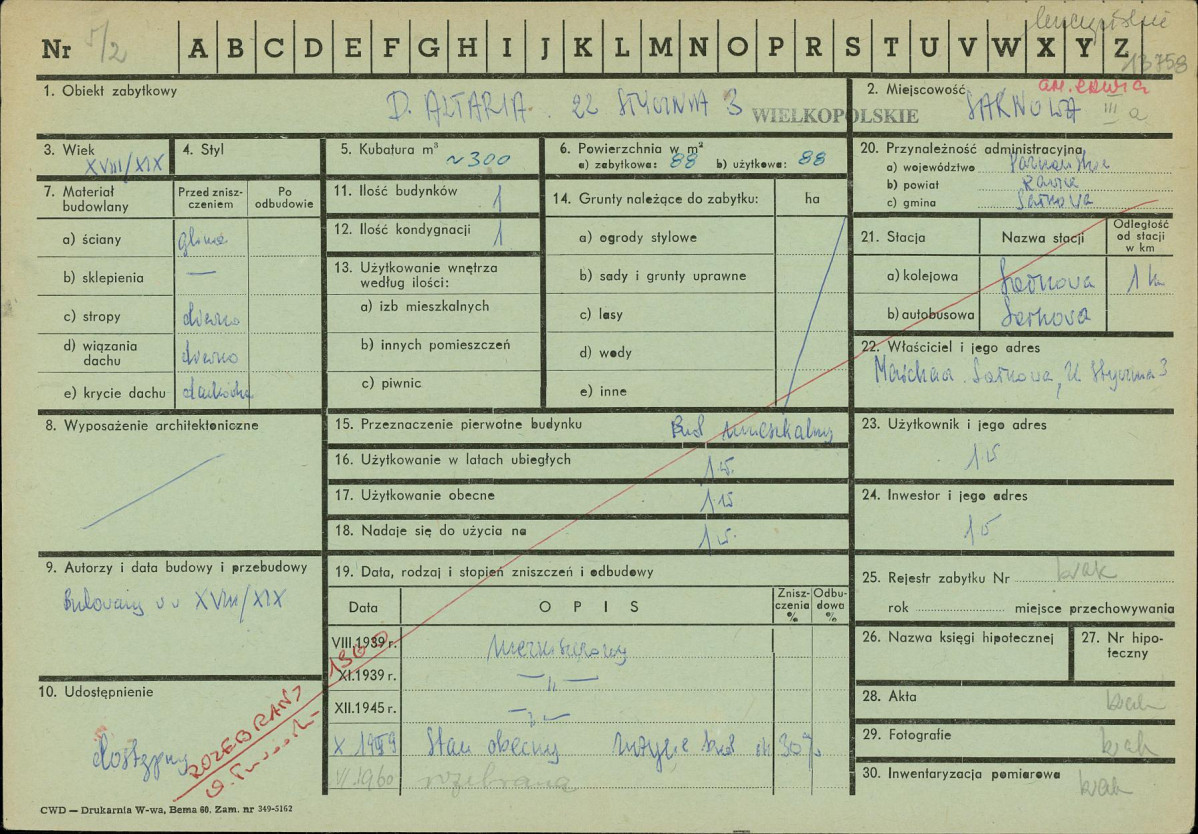 Nr 5/2 A B C D E F G H I J K L M N O P R S T U V W X Y Z
13758
1. Obiekt zabytkowy
D. ALTARIA. 22 STYCZNIA 3
WIELKOPOLSKIE
2. Miejscowość
SARNOWA III a
3. Wiek
XVIII/XIX
4. Styl
5. Kubatura m³
~300
6. Powierzchnia w m²
a) zabytkowa: 88 b) użytkowa: 88
7. Materiał budowlany
Przed zniszczeniem
Po odbudowie
a) ściany glina
b) sklepienia —
c) stropy drewno
d) wiązania dachu drewno
e) krycie dachu dachówka
8. Wyposażenie architektoniczne
9. Autorzy i data budowy i przebudowy
XVIII/XIX
10. Udostępnienie
dostępny
ROZEBRANY 1960
11. Ilość budynków 1
12. Ilość kondygnacji 1
13. Użytkowanie wnętrza według ilości:
a) izb mieszkalnych
b) innych pomieszczeń
c) piwnic
14. Grunty należące do zabytku: ha
a) ogrody stylowe
b) sady i grunty uprawne
c) lasy
d) wody
e) inne
15. Przeznaczenie pierwotne budynku
Bud mieszkalny
16. Użytkowanie w latach ubiegłych
17. Użytkowanie obecne
18. Nadaje się do użycia na
19. Data, rodzaj i stopień zniszczeń i odbudowy
Data
OPIS
Zniszczenia %
Odbudowa %
VIII.1939 r.
XI.1939 r. — „ —
XII.1945 r. — „ —
X 1959 Stan obecny 30%
VI.1960 rozebrana
20. Przynależność administracyjna
a) województwo Poznańskie
b) powiat Rawicz
c) gmina Sarnowa
21. Stacja
Nazwa stacji
Odległość od stacji w km
a) kolejowa Sarnowa 1 km
b) autobusowa Sarnowa
22. Właściciel i jego adres
Sarnowa, 22 Stycznia 3
23. Użytkownik i jego adres
24. Inwestor i jego adres
25. Rejestr zabytku Nr brak
rok miejsce przechowywania
26. Nazwa księgi hipotecznej
27. Nr hipoteczny
28. Akta brak
29. Fotografie brak
30. Inwentaryzacja pomiarowa brak
CWD — Drukarnia W-wa, Bema 60. Zam. nr 349-5162